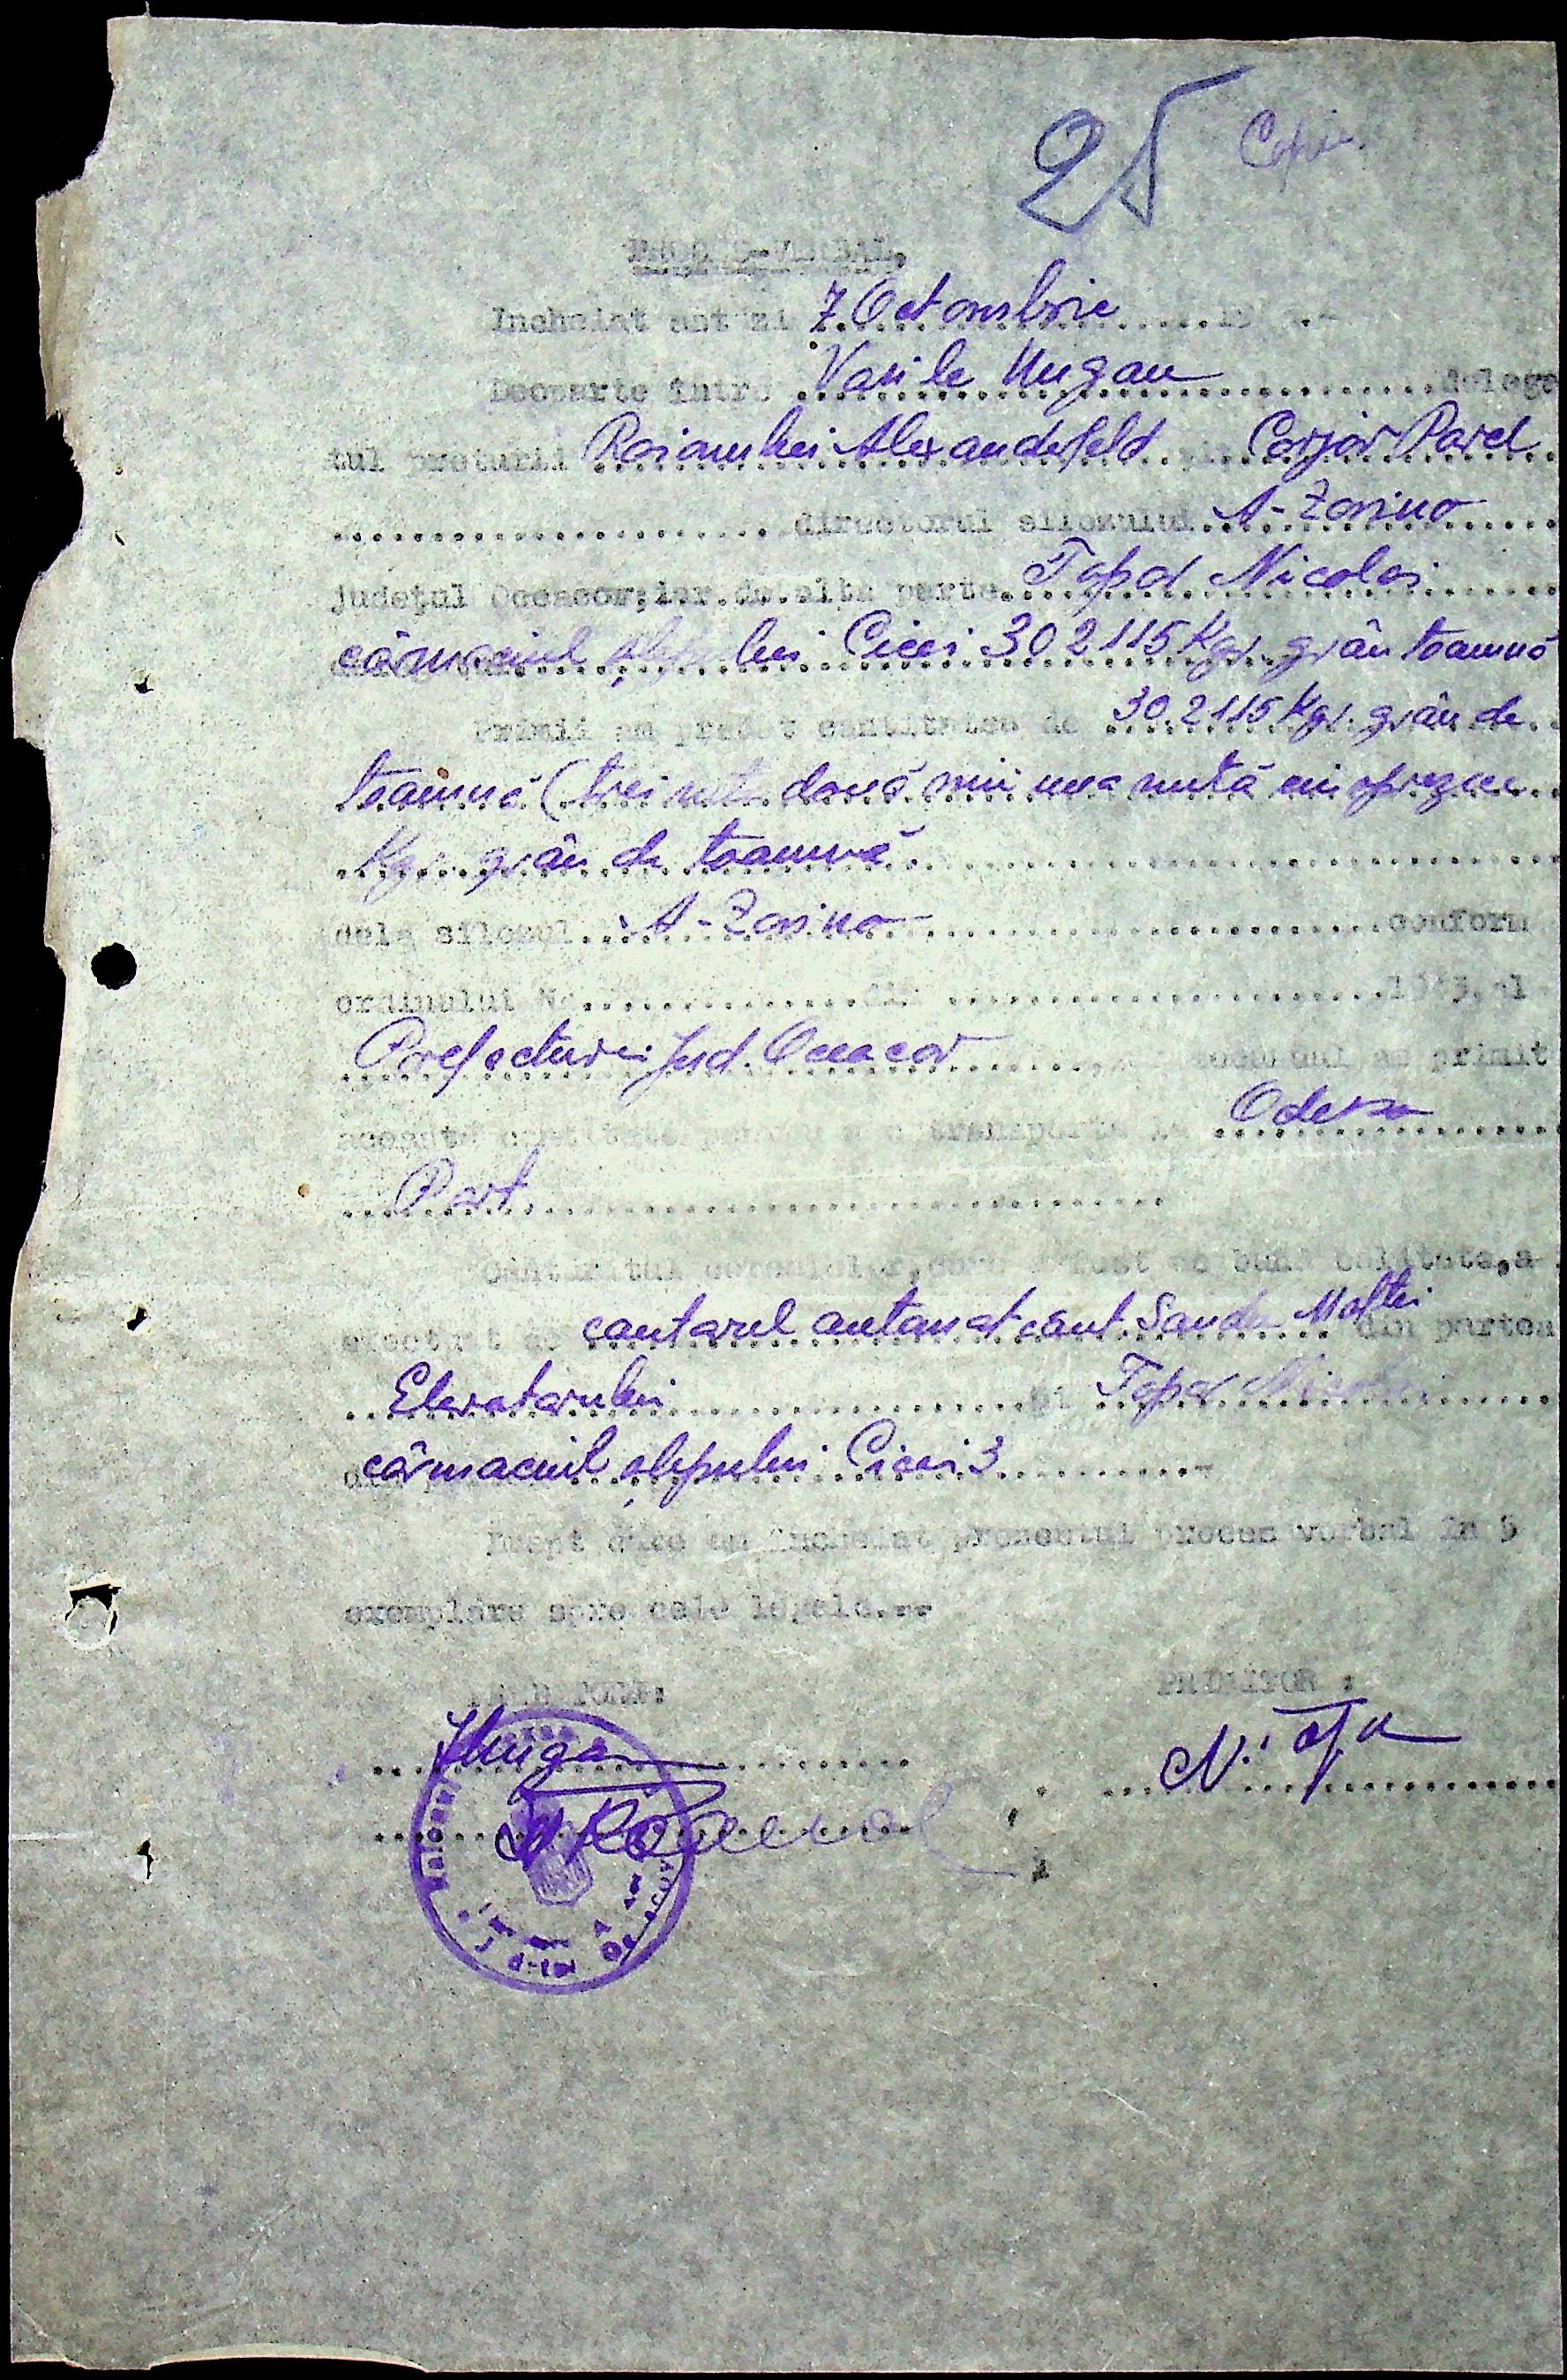 25 Copie.
PROCES-VERBAL.
Incheiat astăzi 7 Octombrie 19
Deoparte între Vasile Ungau delega
tul preturii Raionului Alexandefeld și Corjov Pavel
directorul silozului A-Zosino
județul Oceacov, iar de alta parte Topor Nicolai
cârmaciul șlepului Cicei 302115 Kgr. grân toamnă
Primii am predat cantitatea de 302115 Kgr. grân de
toamnă (trei sute două mii una sută cinsprezece
Kgr. grân de toamnă.
dela silozul A-Zosino conform
ordinului No. din 1943, al
Prefecturei Jud. Oceacov secundul am primit
această cantitate transporta la Odesa
Port
Cântăritul cerealelor, care a fost de bună calitate, a
efectuat de cantarul automat cânt. Sandu Maftei din partea
Elevatorului și Topor Nicolai
cârmaciul șlepului Cicei 3
Drept care am încheiat prezentul proces verbal în 5
exemplare spre cele legale.--
PREDATORI: PRIMITOR :